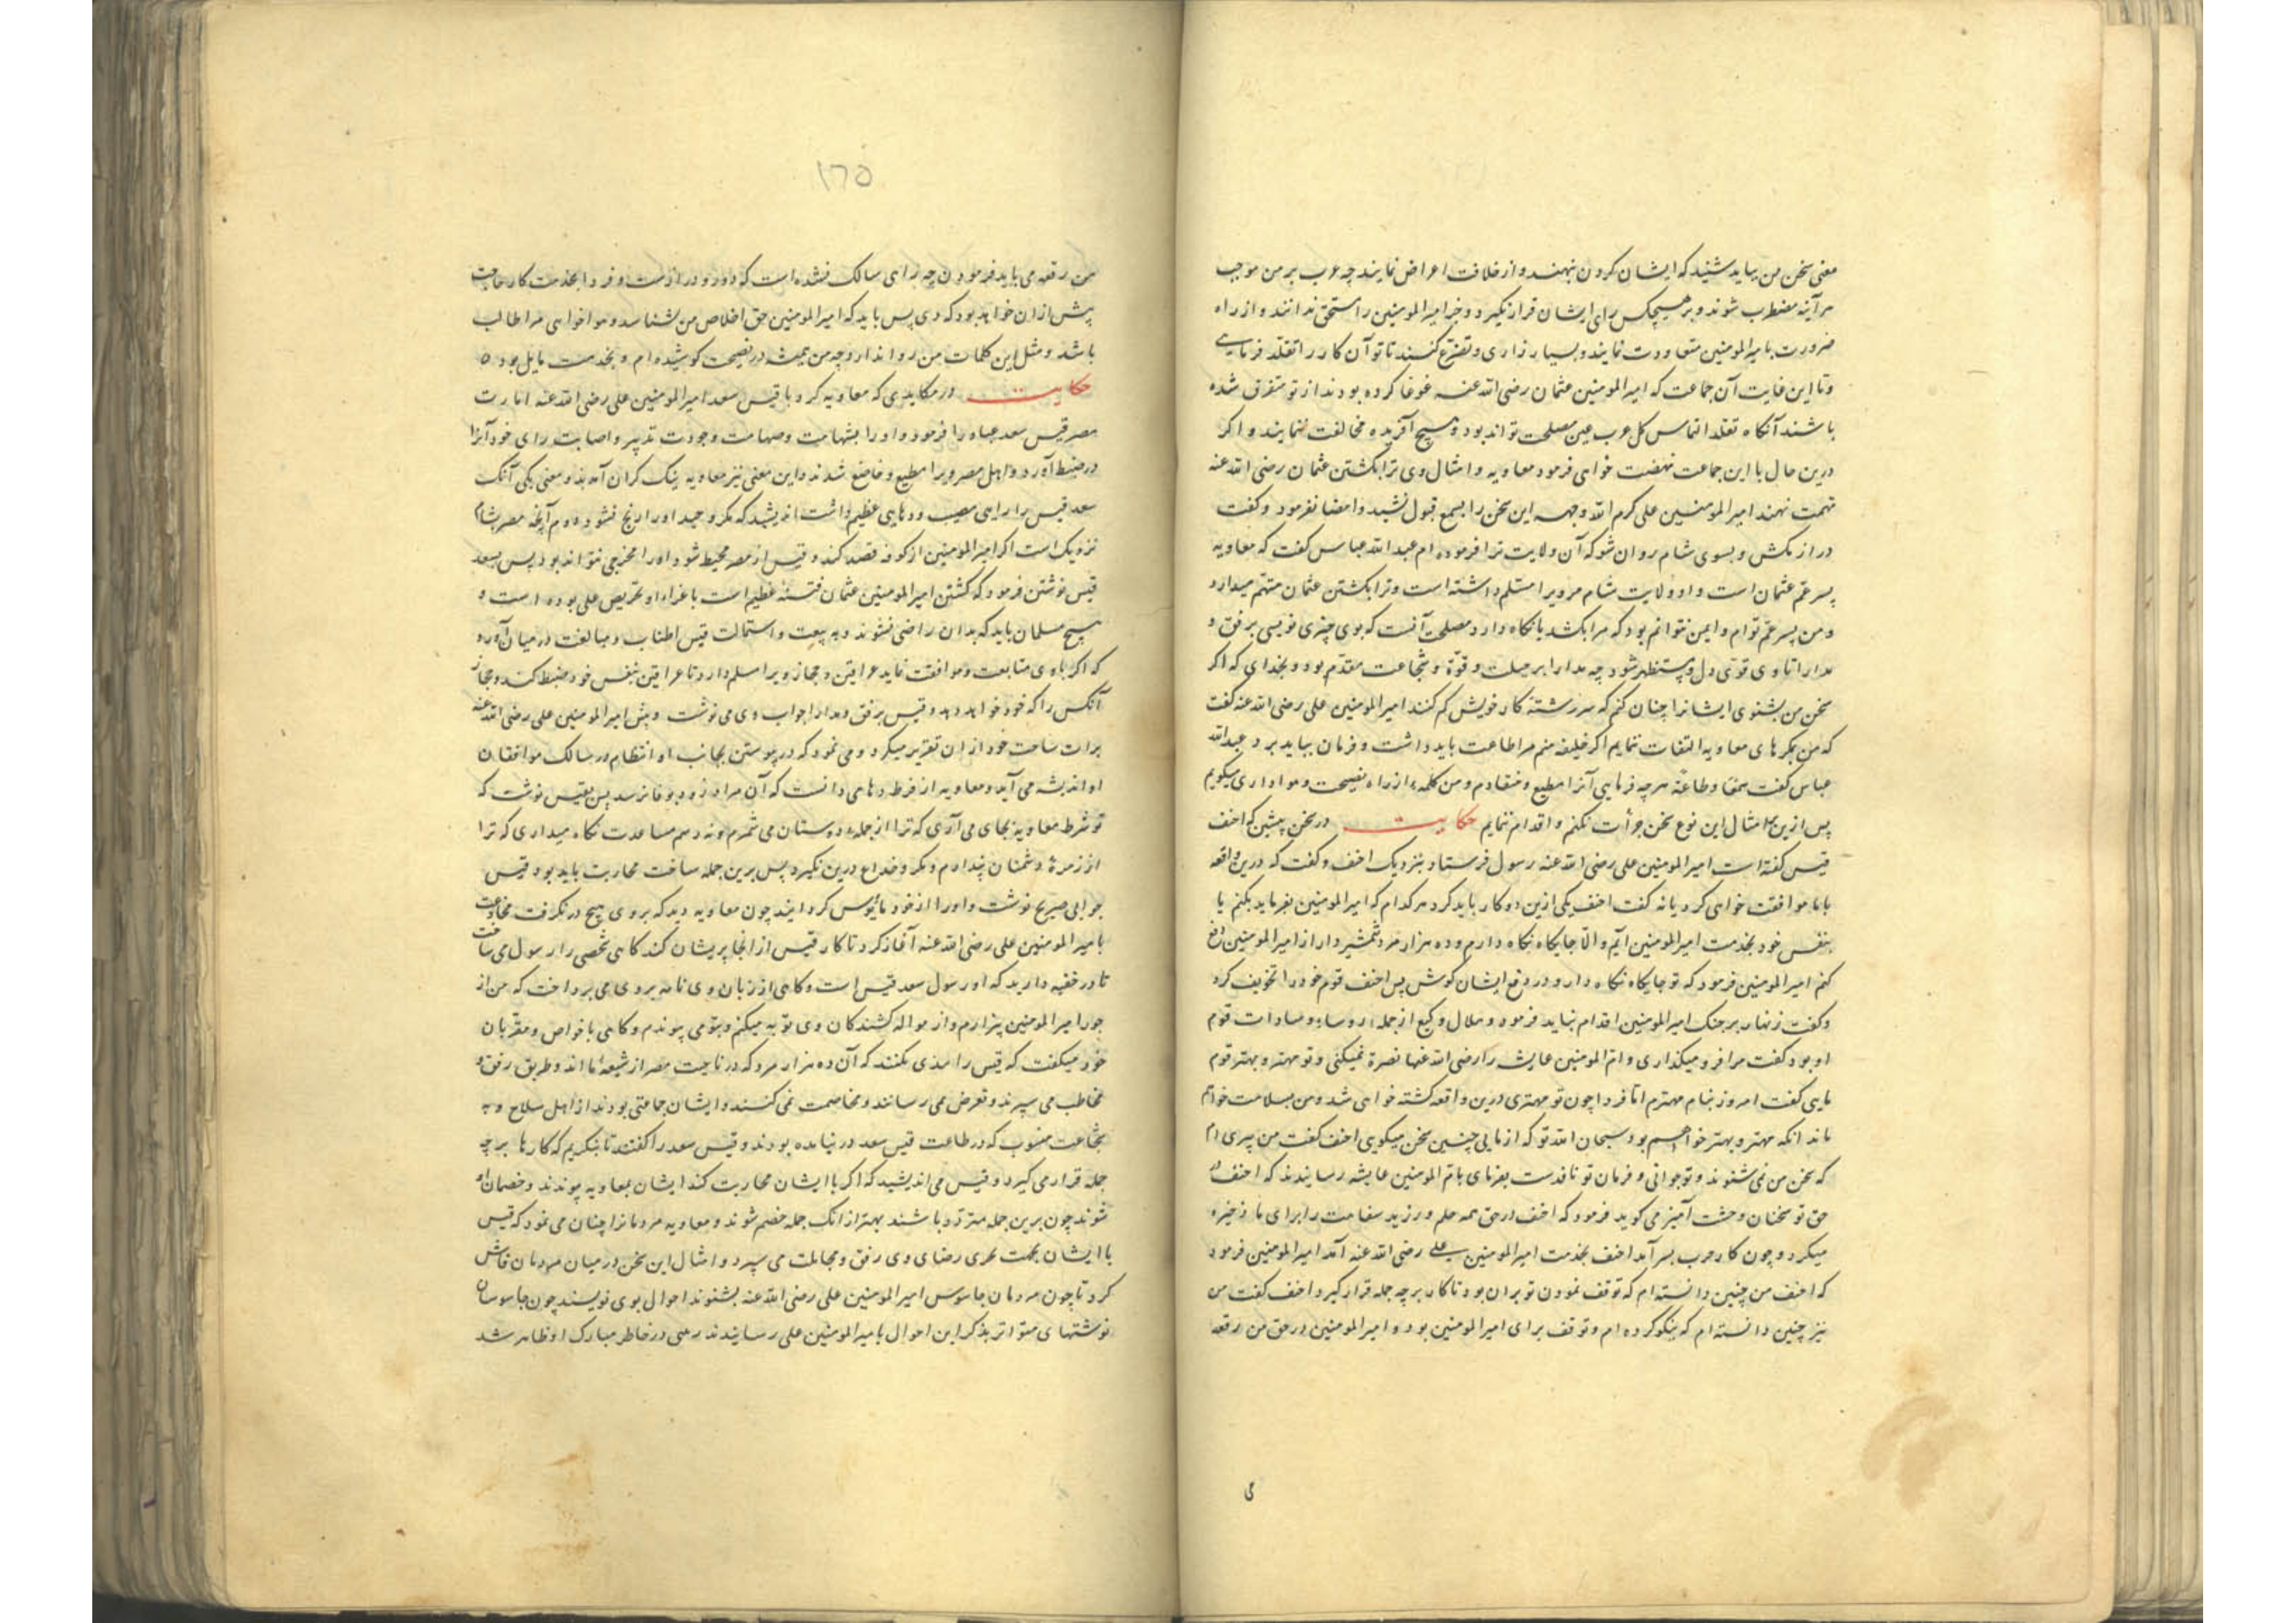 معنی سخن من بباید شنید که ایشان کردن نهند و از خلافت اعراض نمایند چه عرب بر من موجب
هر آینه مضطرب شوند و بر هیچکس رای ایشان قرار نکیرد و جز امیرالمومنین را مستحق ندانند و از راه
ضرورت بامیرالمومنین معاودت نمایند و بسیار زاری و تضرّع کنند تا تو آن کار را تقلّد فرمایی
و تا این غایت آن جماعت که امیرالمومنین عثمان رضی الله عنه غوغا کرده بودند از تو متفرق شده
باشند آنکاه تقلد التماس کل عرب عین مصلحت تواند بود و هیچ آفریده مخالفت ننمایند و اکر
درین حال با این جماعت نهضت خواهی فرمود معاویه و امثال وی ترا بکشتن عثمان رضی الله عنه
تهمت نهند امیرالمومنین علی کرم الله وجهه این سخن را بسمع قبول نشنید و امضا نفرمود و کفت
دراز مکش و بسوی شام روان شو که آن ولایت ترا فرموده ام عبدالله عباس کفت که معاویه
پسر عمّ عثمان است و او ولایت شام مرویرا مسلّم داشته است و ترا بکشتن عثمان متهّم میدارد
و من پسر عمّ توام و ایمن نتوانم بود که مرا بکشد یا نکاه دارد مصلحت آنست که بوی چیزی نویسی برفق و
مدارا تا وی قوی دل و مستظهر شود چه مدارا بر حیلت و قوّة و شجاعت مقدّم بود و بخدای که اکر
سخن من بشنوی ایشانرا چنان کنم که سر رشتهٔ کار خویش کم کنند امیرالمومنین علی رضی الله عنه کفت
که من بمکرهای معاویه التفات ننمایم اکر خلیفه منم مرا طاعت باید داشت و فرمان بباید برد عبدالله
عباس کفت سمعًا و طاعةً هر چه فرمایی آنرا مطیع و منقادم و من کلمهٔ از راه نصیحت و هواداری میکویم
پس ازین بامثال این نوع سخن جرأت نکنم و اقدام ننمایم حکایت در سخن پیشین که احنف
قیس کفته است امیرالمومنین علی رضی الله عنه رسول فرستاد بنزدیک احنف و کفت که درین واقعه
با ما موافقت خواهی کرد یا نه کفت احنف یکی ازین دو کار باید کرد هر کدام که امیرالمومنین بفرماید بکنم یا
بنفس خود بخدمت امیرالمومنین آیم و الّا جایکاه نکاه دارم و ده هزار مرد شمشیردار از امیرالمومنین دفع
کنم امیرالمومنین فرمود که تو جایکاه نکاه دار و در دفع ایشان کوش پس احنف قوم خود را تخویف کرد
و کفت زنهار بر جنک امیرالمومنین اقدام نباید فرمود و هلال وکیع از جملهٔ روساء و سادات قوم
او بود کفت مرا فرو میکذاری و امّ المومنین عایشه را رضی الله عنها نصرة نمیکنی و تو مهتر و بهتر قوم
مایی کفت امروز بنام مهترم امّا فردا چون تو مهتری درین واقعه کشته خواهی شد و من بسلامت خواهم
ماند انکه مهتر و بهتر خواهم بود سبحان الله تو که از مایی چنین سخن میکویی احنف کفت من پیری ام
که سخن من نمی شنوند و تو جوانی و فرمان تو نافذست بفرمای بامّ المومنین عایشه رسانیدند که احنف در
حق تو سخنان وحشت آمیز می کوید فرمود که احنف در حق همه حلم ورزید سفاهت را برای ما ذخیره
میکرد و چون کار حرب بسر آمد احنف بخدمت امیرالمومنین علی رضی الله عنه آمد امیرالمومنین فرمود
که احنف من چنین دانسته ام که توقف نمودن تو بران بود تا کار بر چه جمله قرار کیرد احنف کفت من
نیز چنین دانسته ام که نیکو کرده ام و توقف برای امیرالمومنین بود و امیرالمومنین در حق من رقعه
می
١٦٥
من رقعه می باید فرمودن چه راهی سالک نشده است که دور و درازست و فردا بخدمت کار حاجت
پیش از ان خواهد بود که دی پس باید که امیرالمومنین حق اخلاص من بشناسد و هواخواهی مرا طالب
باشد و مثل این کلمات بمن روا ندارد چه من همیشه در نصیحت کوشیده ام و بخدمت مایل بوده
حکایت در مکایدی که معاویه کرد با قیس سعد امیرالمومنین علی رضی الله عنه امارت
مصر قیس سعد عباده را فرمود و او را بشهامت و صهامت وجودت تدبیر و اصابت رای خود آنرا
در ضبط آورد و اهل مصر ویرا مطیع و خاضع شدند و این معنی نیز معاویه نیک کران آمد بدو معنی یکی آنک
سعد قیس را رایی مصیب و دهایی عظیم داشت اندیشید که بمکر و حیله او را رنج نشود دوم آنکه مصر بشام
نزدیک است اکر امیرالمومنین از کوفه قصد کند و قیس از مصر محیط شود او را مخرجی نتواند بود پس بسعد
قیس نوشتن فرمود که کشتن امیرالمومنین عثمان فتنهٔ عظیم است باغراء او تحریص علی بوده است و
هیچ مسلمان باید که بدان راضی نشوند و به بیعت و استمالت قیس اطناب و مبالغت در میان آورد
که اکر با وی متابعت و موافقت نماید عراقین و حجاز ویرا مسلم دارد تا عراقین بنفس خود ضبط کند و حجاز
آنکس را که خود خواهد دهد و قیس برفق و مدارا جواب وی می نوشت و پیش امیرالمومنین علی رضی الله عنه
براءت ساحت خود از ان تقریر میکرد و می نمود که در پیوستن بجانب او انتظام در سالک موافقان
او اندیشه می آید و معاویه از فرط دهاء می دانست که آن مراد زود بوفا نرسد پس بقیس نوشت که
تو شرط معاویه بجای می آری که ترا از جملهٔ دوستان می شمرم و نه رسم مساعدت نکاه میداری که ترا
از زمرهٔ دشمنان پندارم و مکر و خداع درین نکیرد پس برین جمله ساخت محاربت باید بود قیس
جوابی صریح نوشت و او را از خود مأیوس کردانید چون معاویه دید که بر وی هیچ در نکرفت مخادعت
بامیرالمومنین علی رضی الله عنه آغاز کرد تا کار قیس از انجا پریشان کند کاهی شخصی را رسول می ساخت
تا در خفیه دارید که او رسول سعد قیس است و کاهی از زبان وی نامه بر وی می پرداخت که من از
جور امیرالمومنین بیزارم و از موالهٔ کشندکان وی توبه میکنم و بتو می پیوندم و کاهی با خواص و مقرّبان
خود میکفت که قیس را مذمی نکنند که آن ده هزار مرد که در ناحیت مصر از شیعهٔ ما اند و طریق رفق و
مخاطب می سپرند و تعرض نمی رسانند و مخاصمت نمی کنند و ایشان جماعتی بودند از اهل سلاح و به
شجاعت منسوب که در طاعت قیس سعد در نیامده بودند و قیس سعد را کفتند تا بنکریم که کارها بر چه
جمله قرار می کیرد و قیس می اندیشید که اکر با ایشان محاربت کند ایشان بمعاویه پیوندند و خصمان او
شوند چون برین جمله متردّد باشند بهتر از انک جمله خصم شوند و معاویه مردمانرا چنان می نمود که قیس
با ایشان بجهت تحری رضای وی رفق و مجاملت می سپرد و امثال این سخن در میان مردمان فاش
کرد تا چون مردمان جاسوس امیرالمومنین علی رضی الله عنه بشنوند احوال بوی نویسند چون جاسوسان
نوشتهای متواتر بذکر این احوال بامیرالمومنین علی رسانیدند رعبی در خاطر مبارک او ظاهر شد